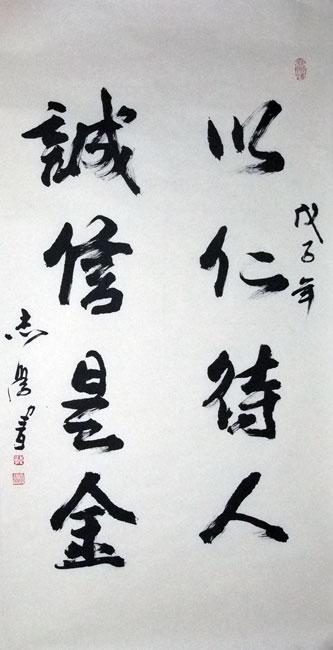 戊子年
以仁待人
誠信是金
志 書